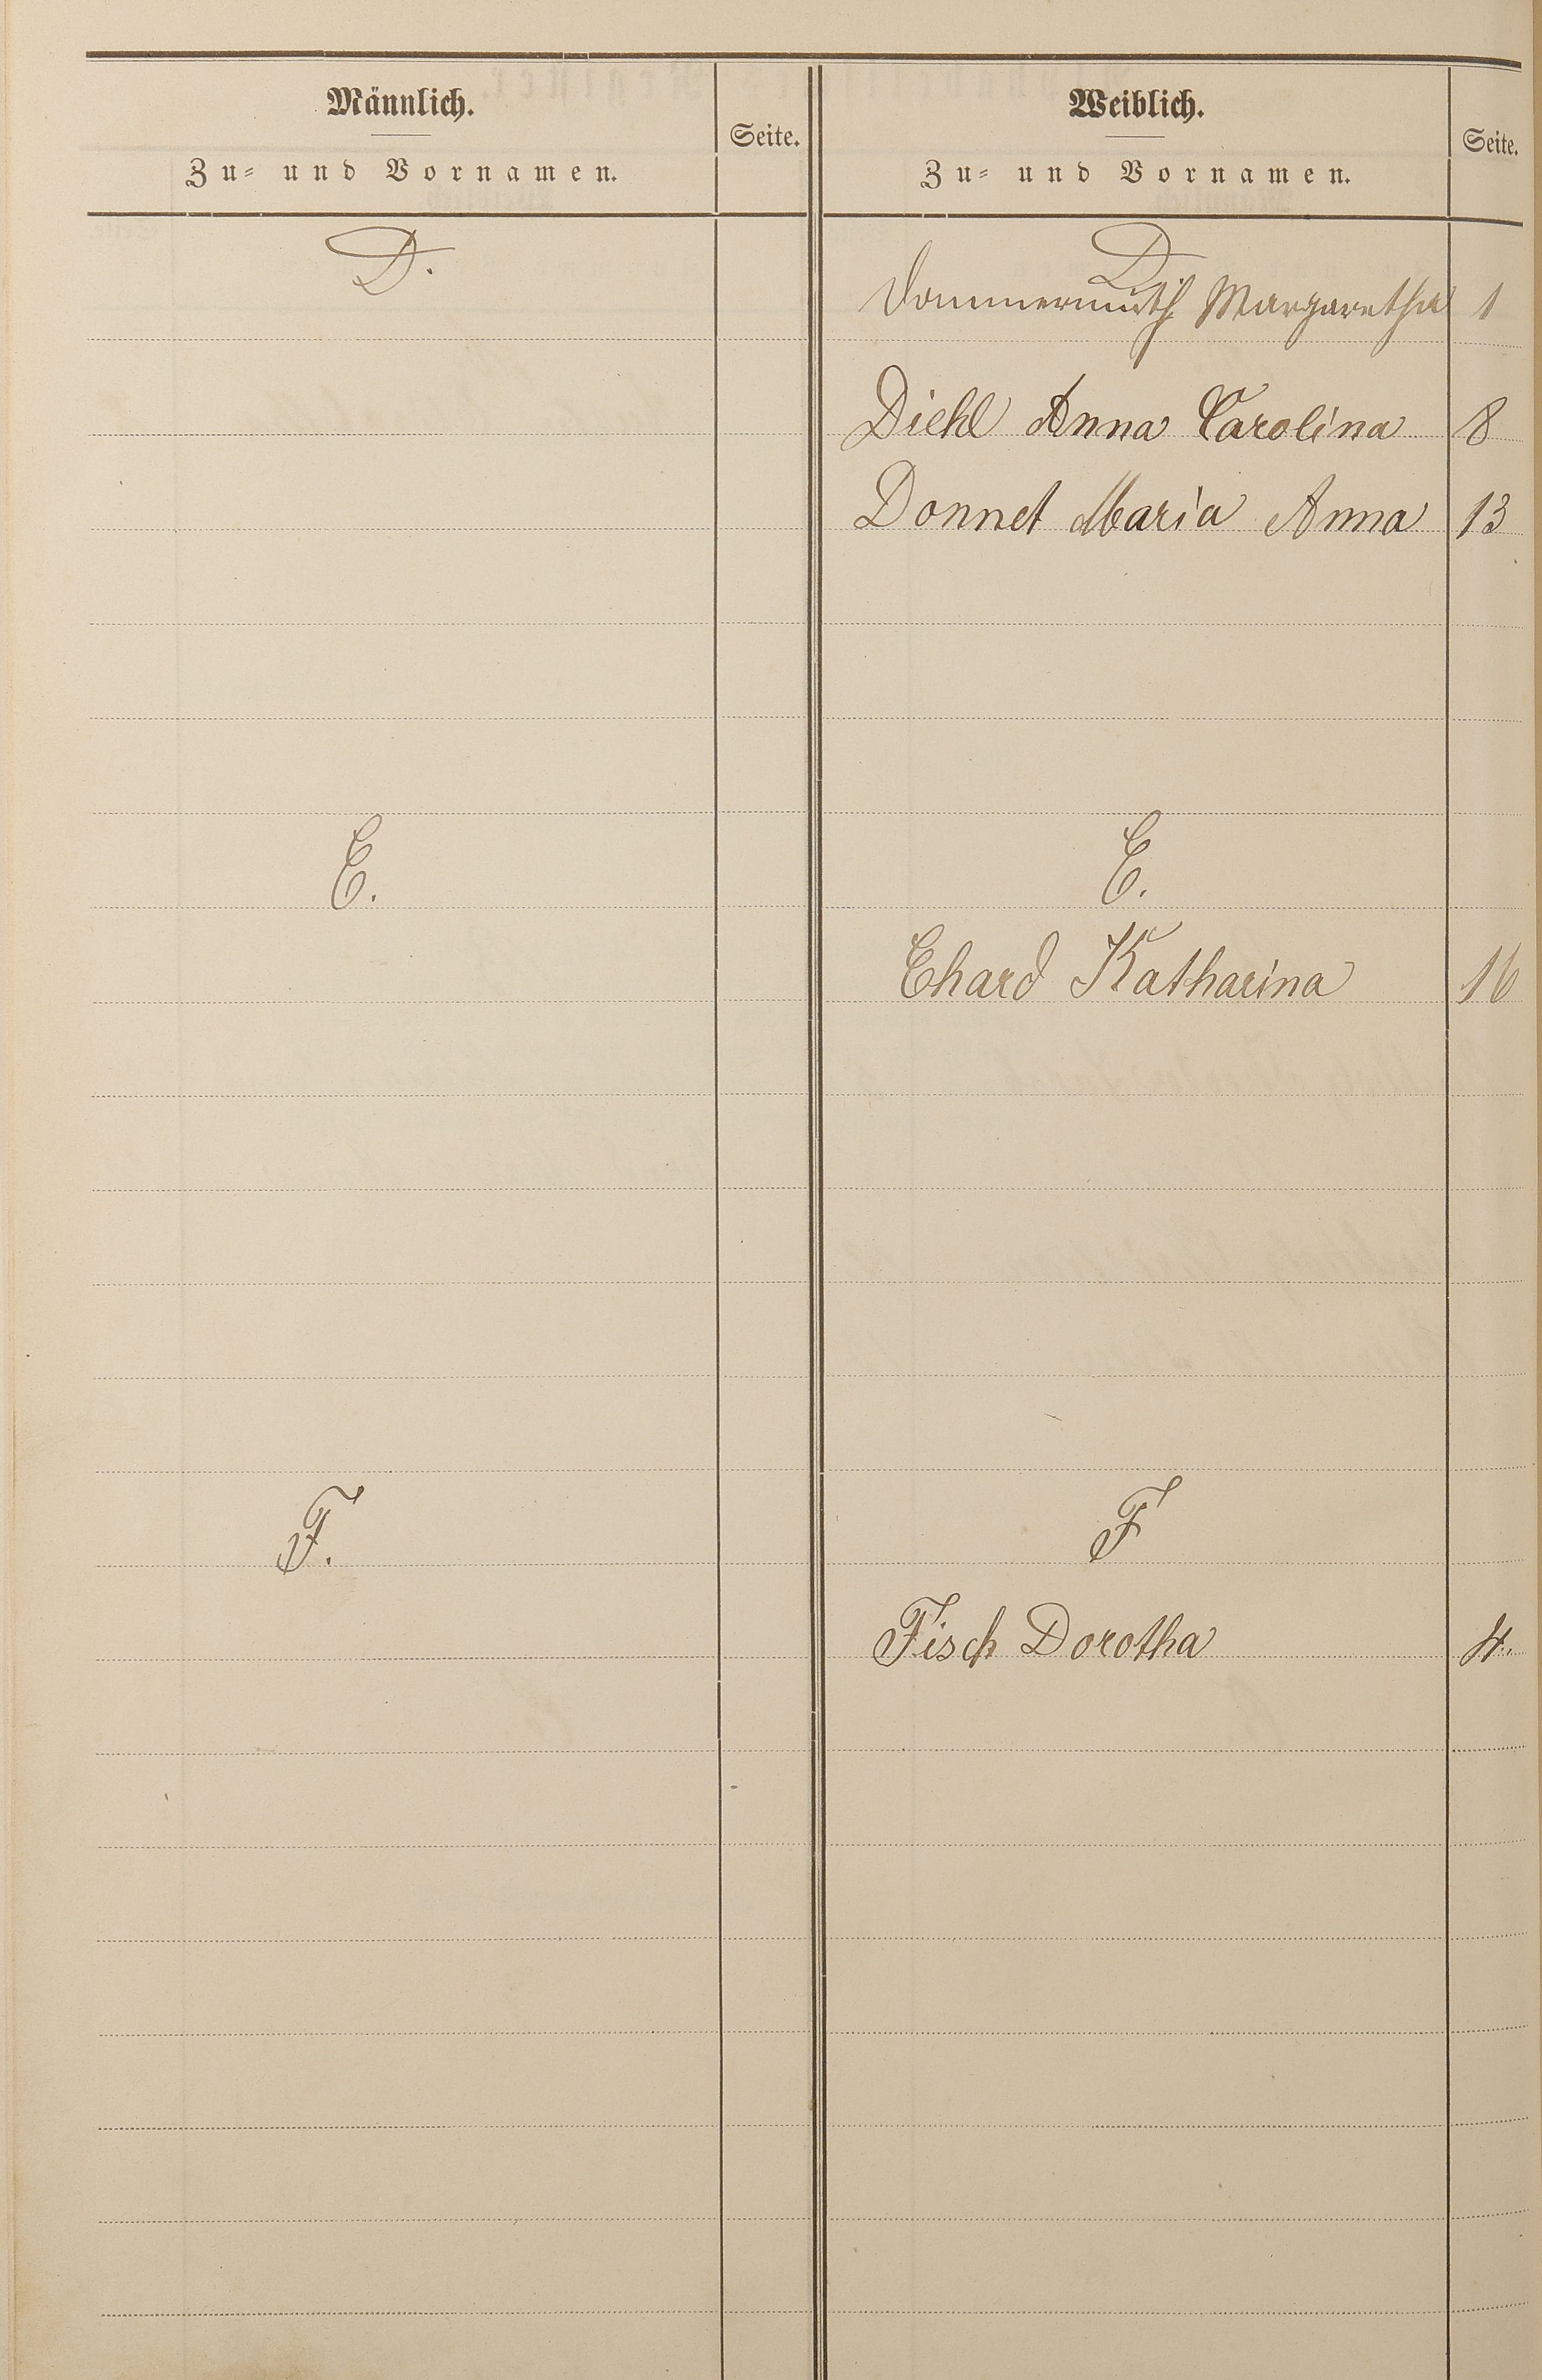 Männlich.
Zu- und Vornamen.
Seite.
Weiblich.
Zu- und Vornamen.
Seite.
D.
D.
Dommermuth Margaretha 1
Diehl Anna Carolina 8
Donnet Maria Anna 13
E.
E.
Ehard Katharina 16
F.
F
Fisch Dorotha 4.